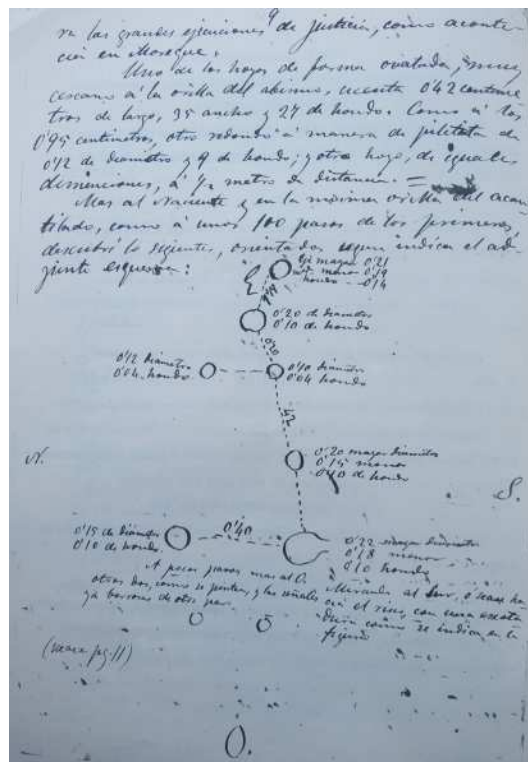 9
ra las grandes ejecuciones de justicia, como aconte-
ció en Moseque.
Uno de los hoyos de forma ovalada, muy
cercano á la orilla del abismo, cuenta 0'42 centíme
tros de largo, 35 ancho y 27 de hondo. Como á los
0'95 centímetros, otro redondo á manera de piletita de
0'12 de diametro y 9 de hondo; y otro hoyo, de iguales
dimenciones, á ½ metro de distancia. =
Mas al Naciente y en la misma orilla del acan
tilado, como á unos 100 pasos de los primeros,
descubrí lo siguiente, orientados segun indica el ad-
junto esquema:
E.
Eje mayor 0'21
menor 0'19
hondo 0'14
0'20 de diametro
0'10 de hondo
0'20
0'12 diametro
0'04 hondo
0'10 diametro
0'04 hondo
42
N.
0'20 mayor diametro
0'15 menor
0'10 de hondo
S.
0'15 de diametro
0'10 de hondo.
0'40
0'22 mayor diametro
0'18 menor
0'10 hondo
A pocos pasos mas al O.
otros dos, como se pintan, y las señales
ya borrosas de otro par.
Mirando al Sur, ó sease ha
cia el risco, con una
como se indica en la
figura
(vease pg. 11)
O.